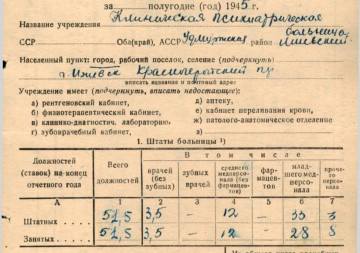 за полугодие (год) 1945 г.
Название учреждения Клиническая психиатрическая
больница
ССР Обл(край), АССР Удмуртская район Ижевский
Населенный пункт: город, рабочий поселок, селение (подчеркнуть)
г. Ижевск
вписать название и почтовый адрес
Учреждение имеет (подчеркнуть, вписать недостающее):
а) рентгеновский кабинет,
б) физиотерапевтический кабинет,
в) клинико-диагностич. лабораторию,
г) зубоврачебный кабинет,
д) аптеку,
е) кабинет переливания крови,
ж) патолого-анатомическое отделение
з)
1. Штаты больницы ¹)
Должностей (ставок) на конец отчетного года
Всего должностей
В том числе
врачей (без зубных)
зубных врачей
среднего медперсонала (без фармацевтов)
фармацевтов
младшего медперсонала
прочего персонала
А 1 2 3 4 5 6 7
Штатных 51,5 3,5 – 12 – 33 3
Занятых 51,5 3,5 – 12 – 28